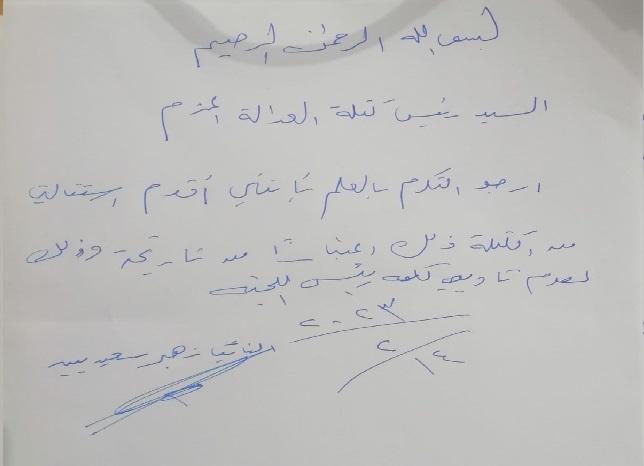 بسم الله الرحمن الرحيم
السيد رئيس كتلة العدالة المحترم
ارجو التكرم بالعلم بأنني أقدم إستقالتي
من الكتلة ذلك إعتباراً من تاريخه وذلك
لعدم كلمة رئيس اللجنه
٢٠٢٣
٢/١٤
النائب زهير سعيدين